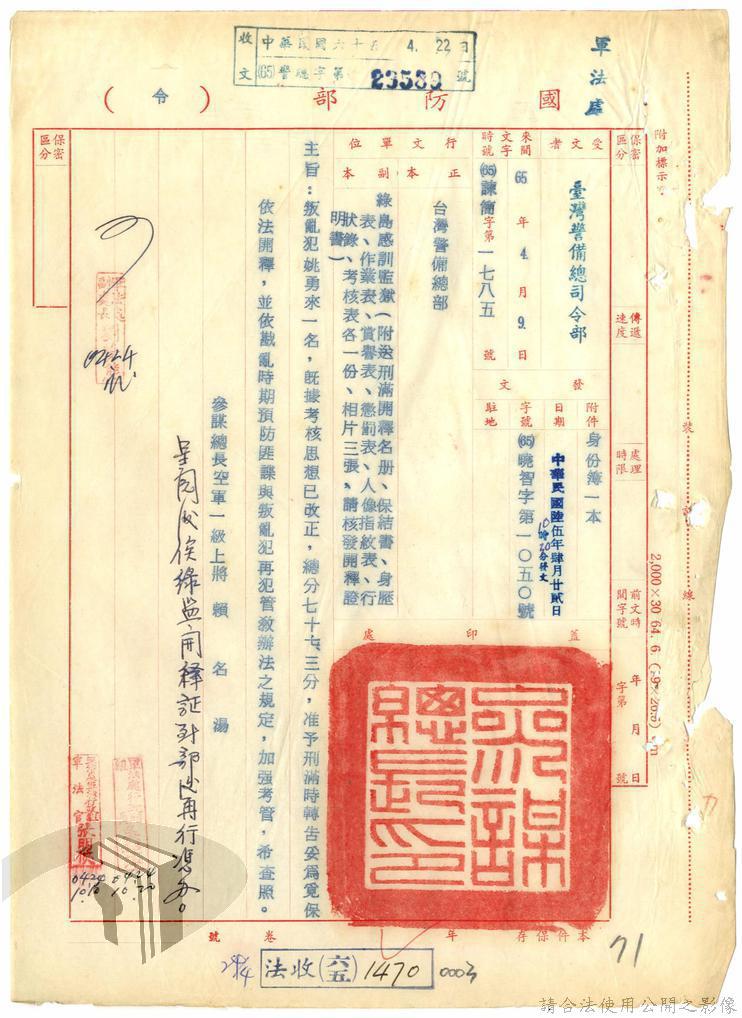 收文
中華民國六十五 4. 22日
(65)警總字第 23589 號
軍法處
國防部(令)
附加標示
裝
線
2,000×30 64.6.
保密區分
傳遞速度
處理時限
前文時間字號
年 月 日
字第 號
受文者
臺灣警備總司令部
來文
時間 65年4月9日
字號 (65)諫簡字第一七八五號
發文
附件 身份簿一本
日期 中華民國陸伍年肆月廿貳日
10時20分發文
字號 (65)曉智字第一〇五〇號
駐地
行文單位
正本
台灣警備總部
副本
綠島感訓監獄(附送刑滿開釋名册、保結書、身歷
表、作業表、賞譽表、懲罰表、人像指紋表、行
狀錄、考核表各一份、相片三張、請核發開釋證
明書)
蓋印處
主旨:叛亂犯姚勇來一名,既據考核思想已改正,總分七十七、三分,准予刑滿時轉告妥為覓保
依法開釋,並依戡亂時期預防匪諜與叛亂犯再犯管教辦法之規定,加強考管,希查照。
參謀總長空軍一級上將 賴名湯
參謀總長印
呈閱後俟綠監開釋証到部後再行憑辦。
0424
軍法官張
0424
10.10
0424
10.20
保密區分
本件保存 年 卷 號
71
法收(六五)1470
0003
請合法使用公開之影像